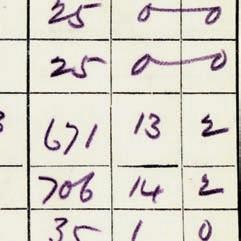 25 0 0
25 0 0
3 671 13 2
706 14 2
35 1 0